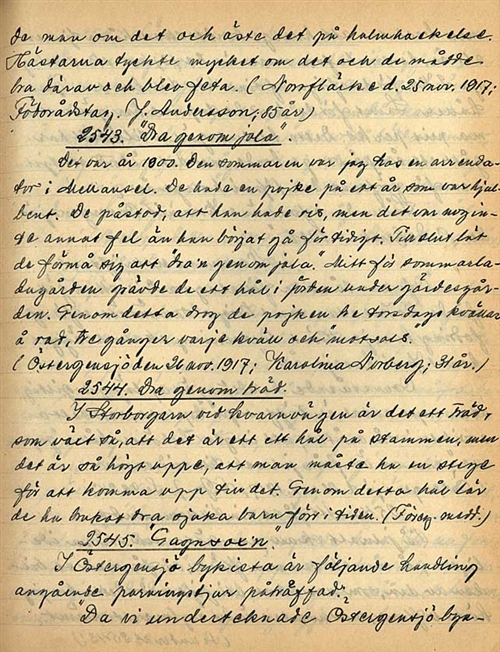 de man om det och öste det på halmhackelse.
Hästarna tyckte mycket om det och de mådde
bra därav och blev feta. (Norrfläcke d. 25 nov. 1917;
Födorådstag. J. Andersson; 85 år)
2543. "Dra genom jola".
Det var år 1900. Den sommaren var jag hos en arrenda-
tor i Mellansel. De hade en pojke på ett år som var hjul-
bent. De påstod, att han hade ris, men det var nog in-
te annat fel än han börjat gå för tidigt. Till slut lät
de förmå sig att "dra'n genom jola." Mitt för sommarla-
dugården grävde de ett hål i jorden under gärdesgår-
den. Genom detta drog de pojken tre torsdagskvällar
å rad, tre gånger varje kväll och "motsols".
(Östergensjö den 26 nov. 1917; Karolina Norberg; 31 år.)
2544. Dra genom träd.
I Storborgarn vid kvarnvägen är det ett träd,
som växt så, att det är ett hål på stammen, men
det är så högt uppe, att man måste ha en stege
för att komma upp till det. Genom detta hål lär
de ha brukat dra sjuka barn förr i tiden. (Föreg. medd.)
2545. "Gagnsox'n"
I Östergensjö bykista är följande handling
angående parningstjur påträffad:
"Da vi undertecknade Östergensjö bya-